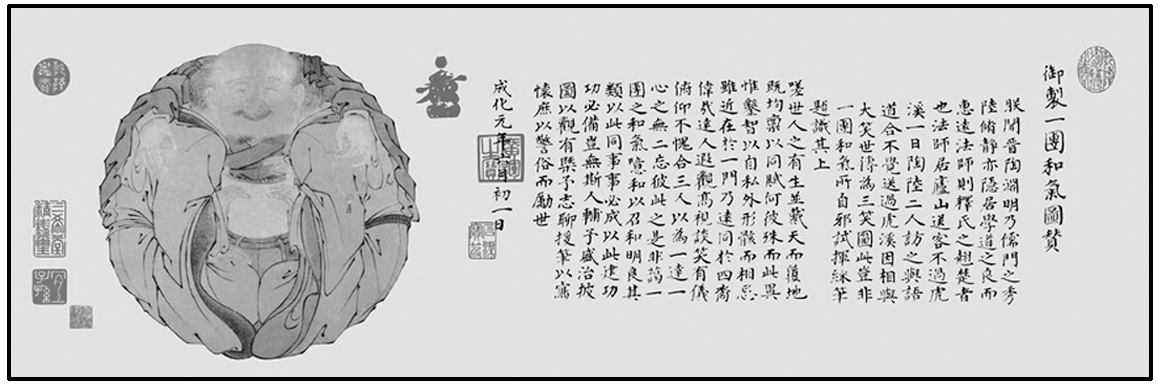 御製一團和氣圖贊
朕聞晉陶淵明乃儒門之秀
陸脩靜亦隱居學道之良而
惠遠法師則釋氏之翹楚者
也法師居廬山送客不過虎
溪一日陶陸二人訪之與語
道合不覺送過虎溪因相與
大笑世傳為三笑圖此豈非
一團和氣所自邪試揮綵筆
題識其上
嗟世人之有生並戴天而履地
既均稟以同賦何彼殊而此異
惟鑿智以自私外形骸而相忌
雖近在於一門乃遠同於四裔
偉哉達人遐觀高視談笑有儀
俯仰不愧合三人以為一達一
心之無二忘彼此之是非藹一
團之和氣噫和以召和明良其
類以此同事事必成以此建功
功必備豈無斯人輔予盛治披
圖以觀有槩予志聊援筆以寫
懷庶以警俗而勵世
成化元年六月初一日
廣運之寶
乾隆鑑賞
三希堂精鑑璽
宜子孫